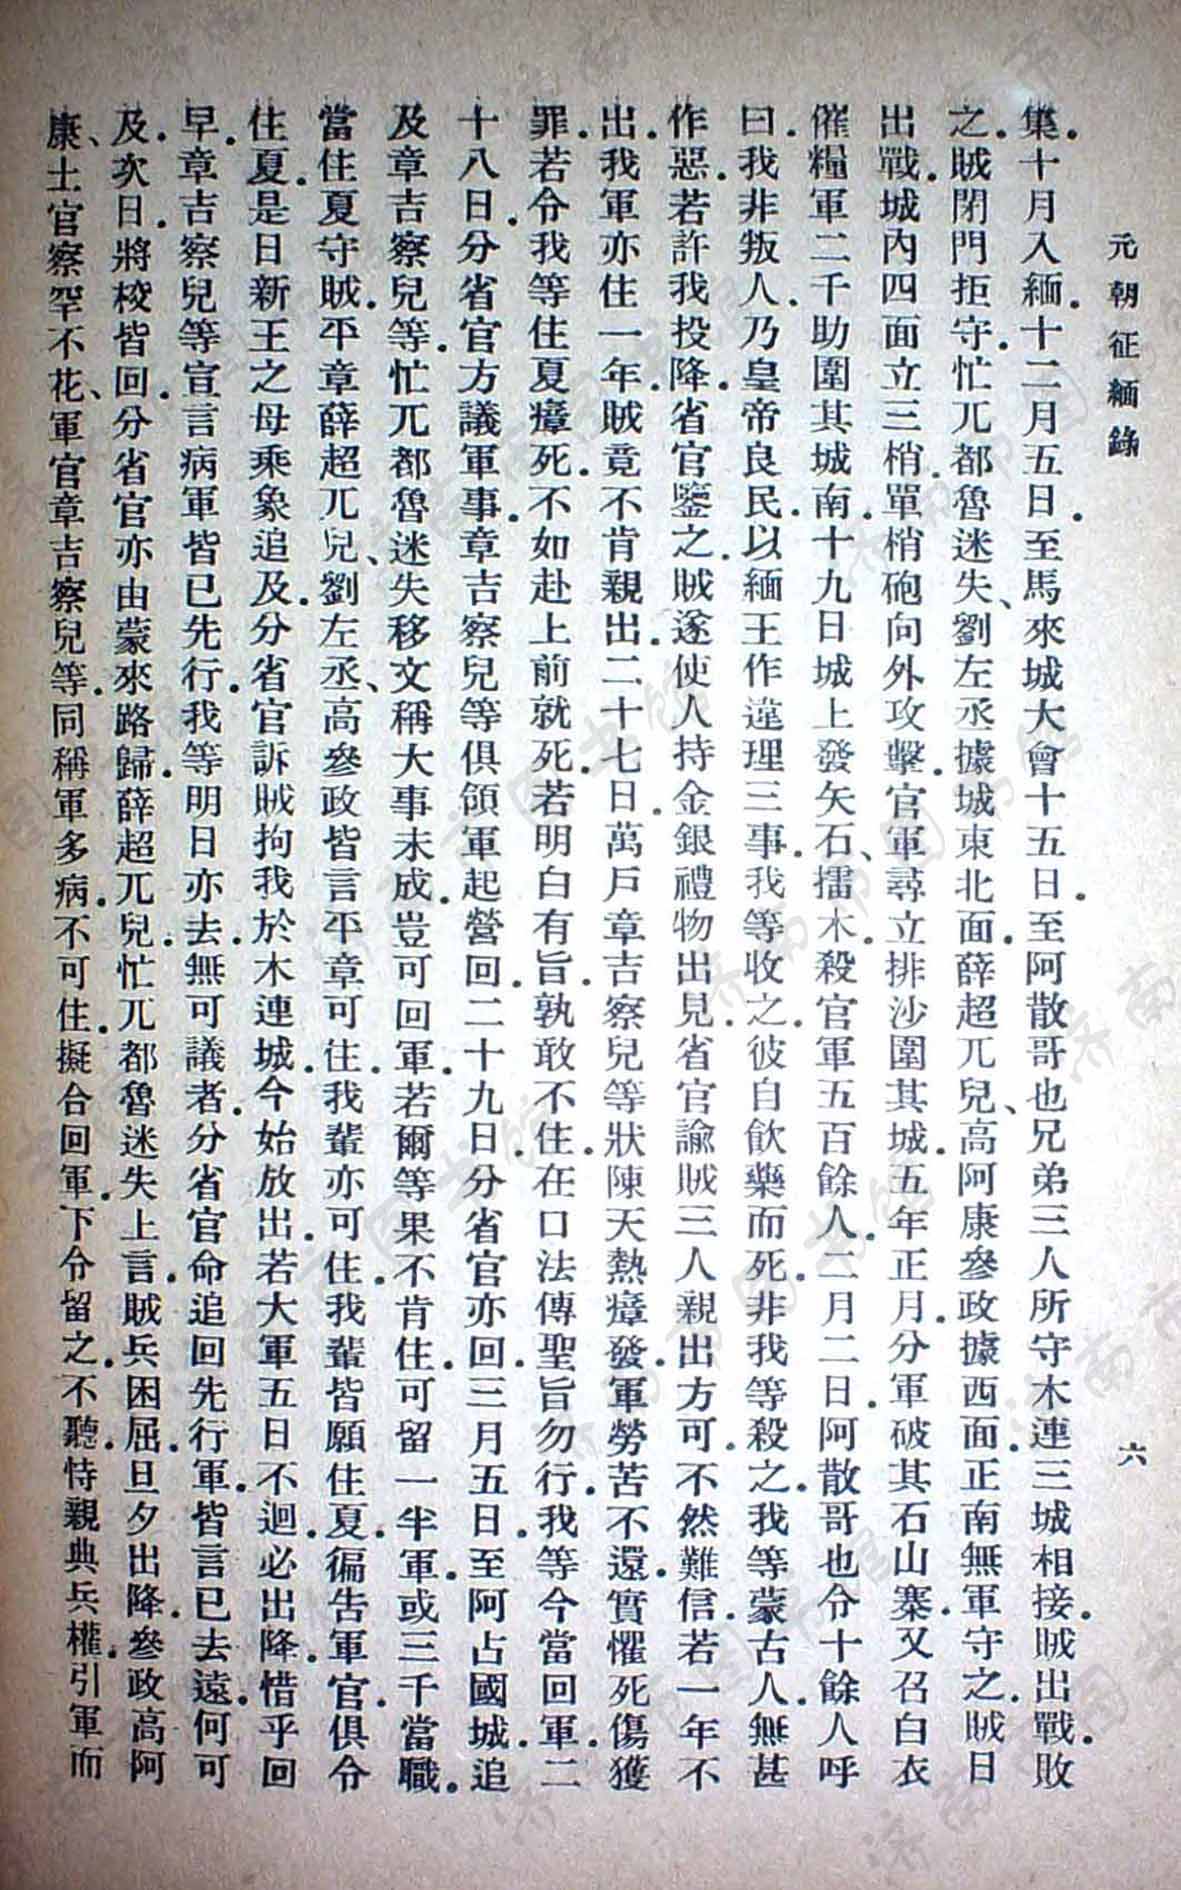 元朝征緬錄
六
集。十月入緬。十二月五日。至馬來城大會十五日。至阿散哥也兄弟三人所守木連三城相接。賊出戰。敗
之。賊閉門拒守。忙兀都魯迷失、劉左丞據城東北面。薛超兀兒、高阿康參政據西面。正南無軍守之。賊日
出戰。城內四面立三梢。單梢砲向外攻擊。官軍尋立排沙圍其城。五年正月。分軍破其石山寨。又召白衣
催糧軍二千助圍其城南。十九日城上發矢石、擂木。殺官軍五百餘人。二月二日。阿散哥也令十餘人呼
曰。我非叛人。乃皇帝良民。以緬王作違理三事。我等收之。彼自飲藥而死。非我等殺之。我等蒙古人。無甚
作惡。若許我投降。省官鑒之。賊遂使人持金銀禮物出見。省官諭賊三人親出方可。不然難信。若一年不
出。我軍亦住一年。賊竟不肯親出。二十七日。萬戶章吉察兒等狀陳天熱瘴發。軍勞苦不還。實懼死傷獲
罪。若令我等住夏瘴死。不如赴上前就死。若明白有旨。孰敢不住。在口法傳聖旨勿行。我等今當回軍。二
十八日。分省官方議軍事。章吉察兒等俱領軍起營回。二十九日。分省官亦回。三月五日。至阿占國城。追
及章吉察兒等。忙兀都魯迷失移文稱大事未成。豈可回軍。若爾等果不肯住。可留一半軍。或三千當職。
當住夏守賊。平章薛超兀兒、劉左丞、高參政皆言平章可住。我輩亦可住。我輩皆願住夏。徧告軍官。俱令
住夏。是日新王之母乘象追及。分省官訴賊拘我於木連城。今始放出。若大軍五日不迴。必出降。惜乎回
早。章吉察兒等宣言病軍皆已先行。我等明日亦去。無可議者。分省官命追回先行軍。皆言已去遠。何可
及。次日。將校皆回。分省官亦由蒙來路歸。薛超兀兒。忙兀都魯迷失上言。賊兵困屈。旦夕出降。參政高阿
康、士官察罕不花、軍官章吉察兒等。同稱軍多病。不可住。擬合回軍。下令留之。不聽。恃親典兵權。引軍而